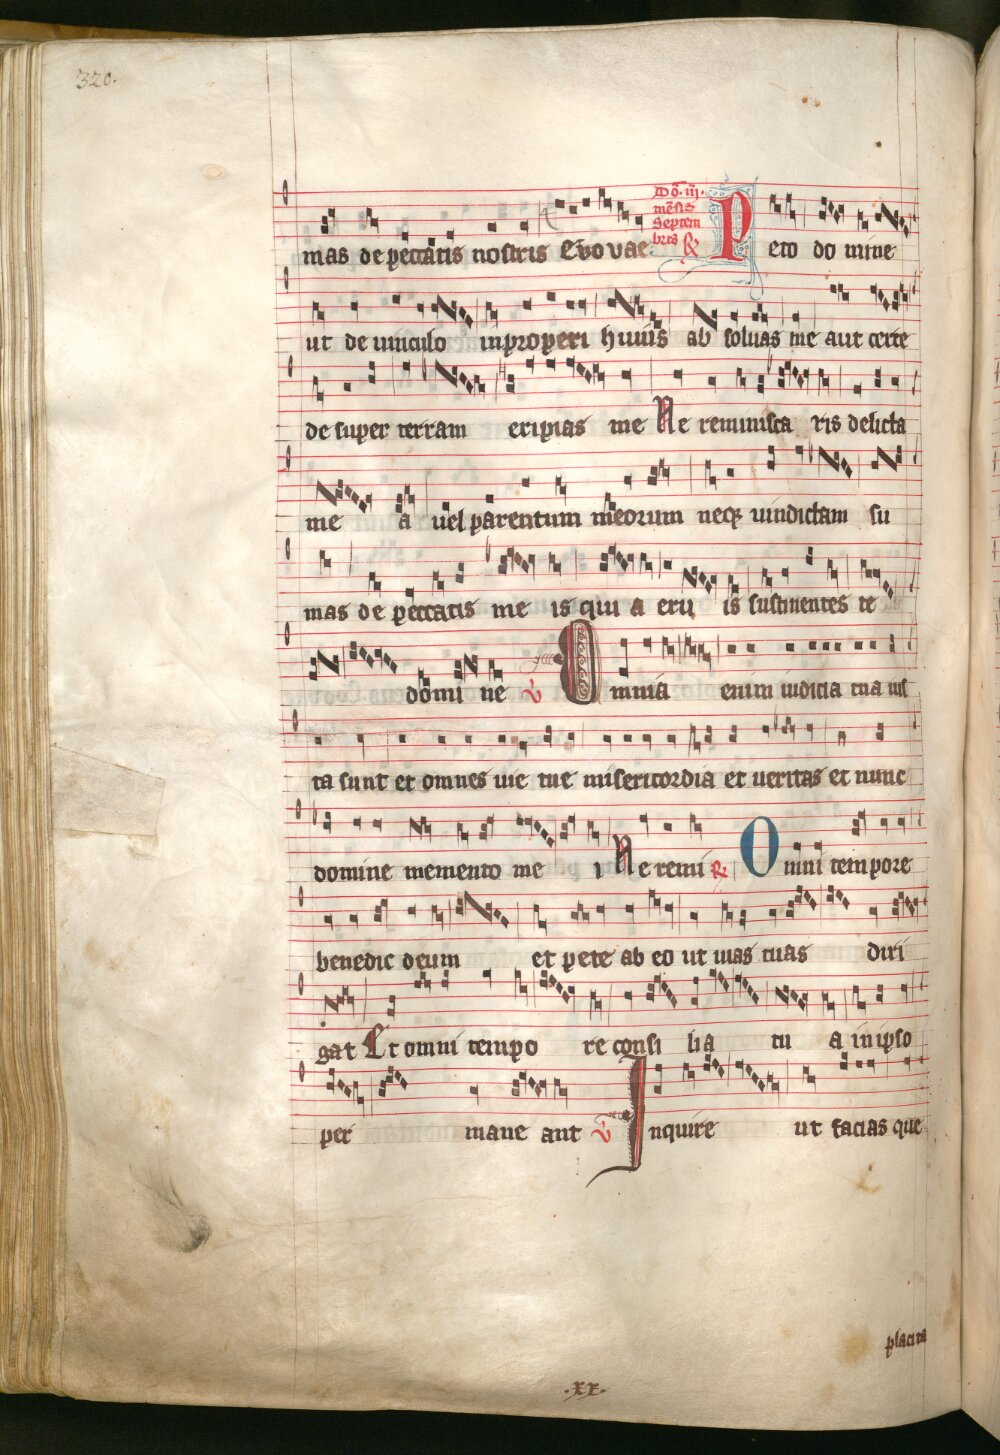 320.
mas de peccatis nostris Evovae
Dō. iii.
mēsis
Septem
bris R
Peto do mine
ut de vinculo inproperi huius ab soluas me aut certe
de super terram eripias me Ne reminisca ris delicta
me a uel parentum meorum neq; uindictam su
mas de peccatis me is qui a eru is sustinentes te
domi ne V Omnia enim iudicia tua ius
ta sunt et omnes uie tue misericordia et ueritas et nunc
domine memento me i Ne remi R Omni tempore
benedic deum et pete ab eo ut uias tuas diri
gat Et omni tempo re consi lia tu a in ipso
per mane ant V Inquire ut facias que
placita
.xx.